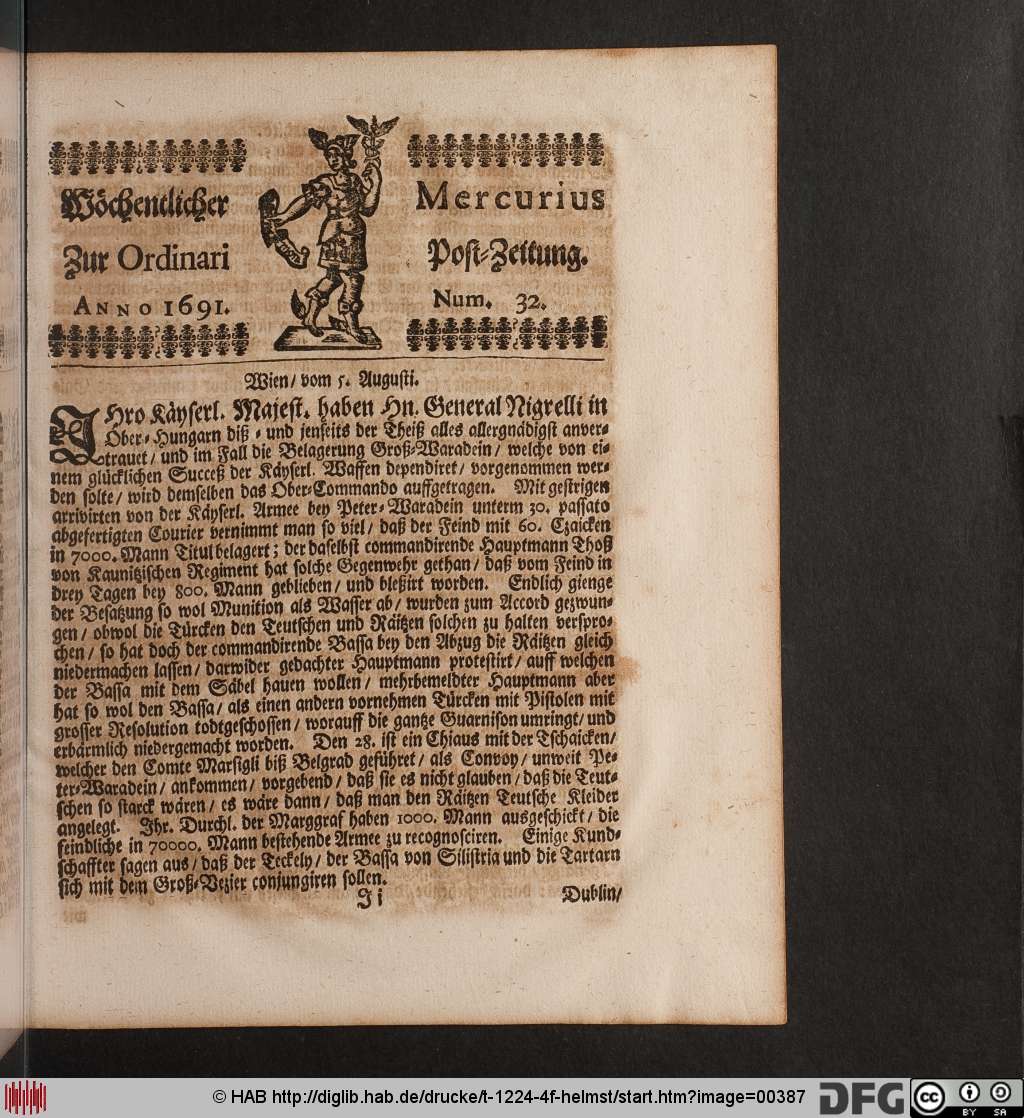 Wöchentlicher Mercurius
Zur Ordinari Post-Zeitung.
ANNO 1691. Num. 32.
Wien/ vom 5. Augusti.
IHro Käyserl. Majest. haben Hn. General Nigrelli in
Ober-Hungarn diß- und jenseits der Theiß alles allergnädigst anver-
trauet/ und im Fall die Belagerung Groß-Waradein/ welche von ei-
nem glücklichen Succeß der Käyserl. Waffen dependiret/ vorgenommen wer-
den solte/ wird demselben das Ober-Commando auffgetragen. Mit gestrigen
arrivirten von der Käyserl. Armee bey Peter-Waradein unterm 30. passato
abgefertigten Courier vernimmt man so viel/ daß der Feind mit 60. Czaicken
in 7000. Mann Titul belagert; der daselbst commandirende Hauptmann Thoß
von Kaunitzischen Regiment hat solche Gegenwehr gethan/ daß vom Feind in
drey Tagen bey 800. Mann geblieben/ und bleßirt worden. Endlich gienge
der Besatzung so wol Munition als Wasser ab/ wurden zum Accord gezwun-
gen/ obwol die Türcken den Teutschen und Räitzen solchen zu halten verspro-
chen/ so hat doch der commandirende Bassa bey den Abzug die Räitzen gleich
niedermachen lassen/ darwider gedachter Hauptmann protestirt/ auff welchen
der Bassa mit dem Säbel hauen wollen/ mehrbemeldter Hauptmann aber
hat so wol den Bassa/ als einen andern vornehmen Türcken mit Pistolen mit
grosser Resolution todtgeschossen/ worauff die gantze Guarnison umringt/ und
erbärmlich niedergemacht worden. Den 28. ist ein Chiaus mit der Tschaicken/
welcher den Comte Marsigli biß Belgrad geführet/ als Convoy/ unweit Pe-
ter-Waradein/ ankommen/ vorgebend/ daß sie es nicht glauben/ daß die Teut-
schen so starck wären/ es wäre dann/ daß man den Räitzen Teutsche Kleider
angelegt. Ihr. Durchl. der Marggraf haben 1000. Mann ausgeschickt/ die
feindliche in 70000. Mann bestehende Armee zu recognosciren. Einige Kund-
schaffter sagen aus/ daß der Teckely/ der Bassa von Silistria und die Tartarn
sich mit dem Groß-Vezier conjungiren sollen.
Ii Dublin/
© HAB http://diglib.hab.de/drucke/t-1224-4f-helmst/start.htm?image=00387
DFG
cc BY SA